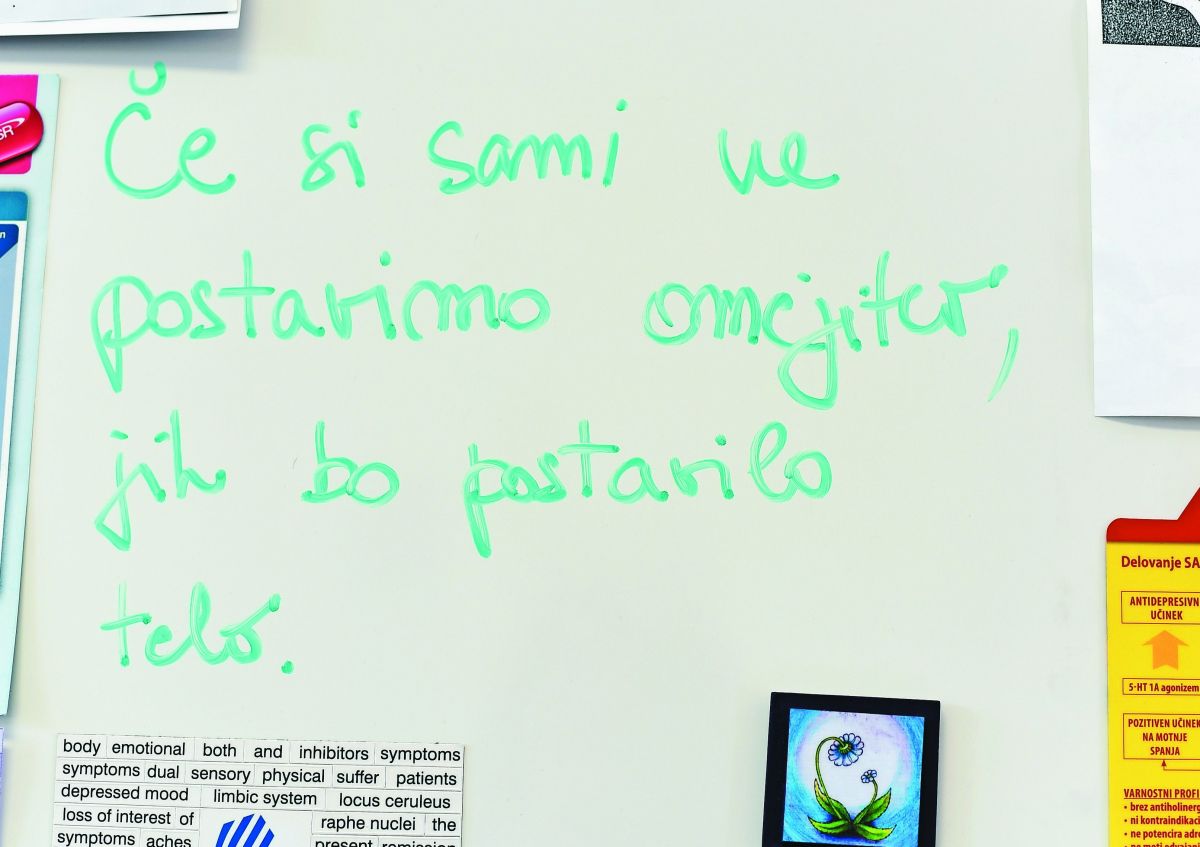 Če si sami ne
postavimo omejitev,
jih bo postavilo
telo.
SR
body emotional both and inhibitors symptoms
symptoms dual sensory physical suffer patients
depressed mood limbic system locus ceruleus
loss of interest of
raphe nuclei the
symptoms aches
present remission
Delovanje SA
ANTIDEPRESIVN
UČINEK
5-HT 1A agonizem
POZITIVEN UČINEK
NA MOTNJE
SPANJA
VARNOSTNI PROFI
• brez antiholinerg
• ni kontraindikaci
• ne potencira adre